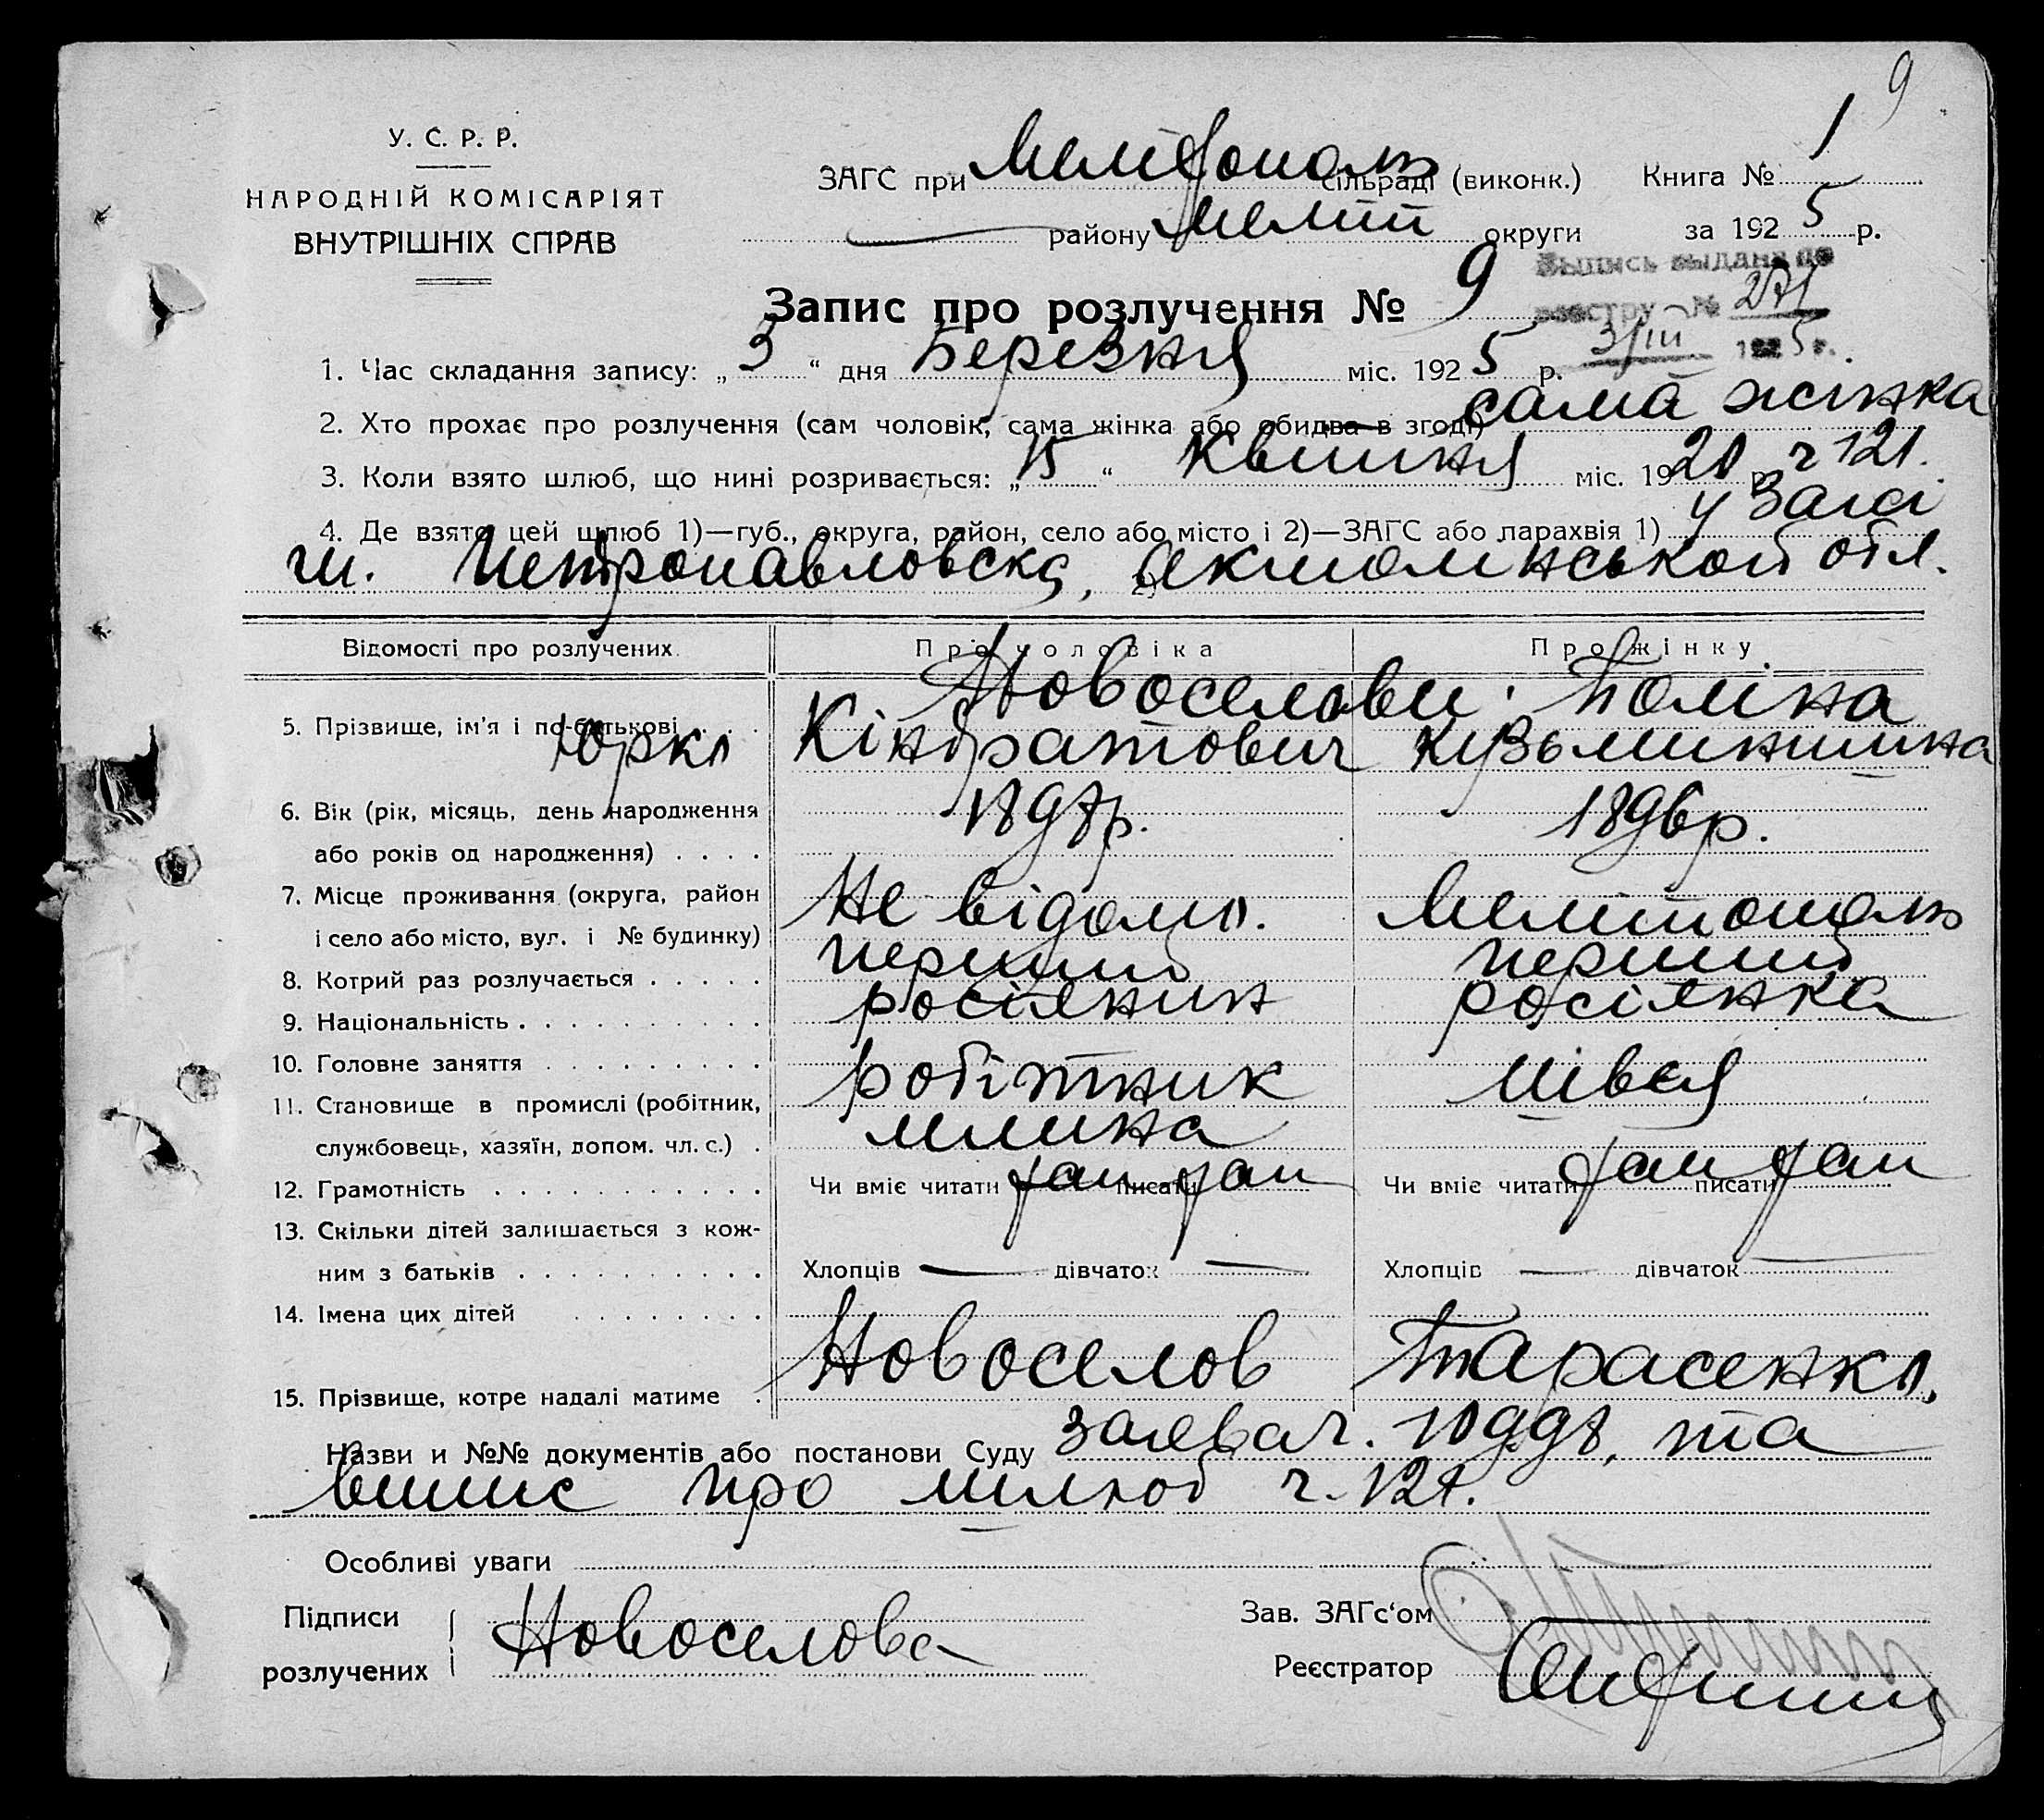 9
У. С. Р. Р.
НАРОДНІЙ КОМІСАРІЯТ
ВНУТРІШНІХ СПРАВ
ЗАГС при Мелітополь сільраді (виконк.) Книга № 1
району Меліт округи за 1925 р.
Выпись выдана по
реестру №
3/III 1925 г.
Запис про розлучення № 9
1. Час складання запису: „3“ дня Березня міс. 1925 р.
2. Хто прохає про розлучення (сам чоловік, сама жінка або обидва в згоді) сама жінка
3. Коли взято шлюб, що нині розривається: „15“ Квитня міс. 1920 р. ч 121.
4. Де взято цей шлюб 1)—губ., округа, район, село або місто і 2)—ЗАГС або парахвія 1) у Загсі
м. Петропавловска, 2) Акмолинської обл.
Відомості про розлучених. Про чоловіка Про жінку.
Новоселови Поліна
5. Прізвище, ім'я і по-батькові Юрко Кіндратович Кузьминишна
6. Вік (рік, місяць, день народження 1897р. 1896р.
або років од народження)
7. Місце проживання (округа, район Не відомо. Мелітополь
і село або місто, вуг. і № будинку)
8. Котрий раз розлучається перший перший
9. Національність росіянин росіянка
10. Головне заняття робітник швея
11. Становище в промислі (робітник, млина
службовець, хазяїн, допом. чл. с.)
12. Грамотність Чи вміє читати так писати так Чи вміє читати так писати так
13. Скільки дітей залишається з кож-
ним з батьків Хлопців — дівчаток — Хлопців — дівчаток —
14. Імена цих дітей
15. Прізвище, котре надалі матиме Новоселов Тарасенко.
Назви и №№ документів або постанови Суду заява ч. та
випис про шлюб ч. 121.
Особливі уваги
Підписи Новоселова Зав. ЗАГс‘ом
розлучених Реєстратор